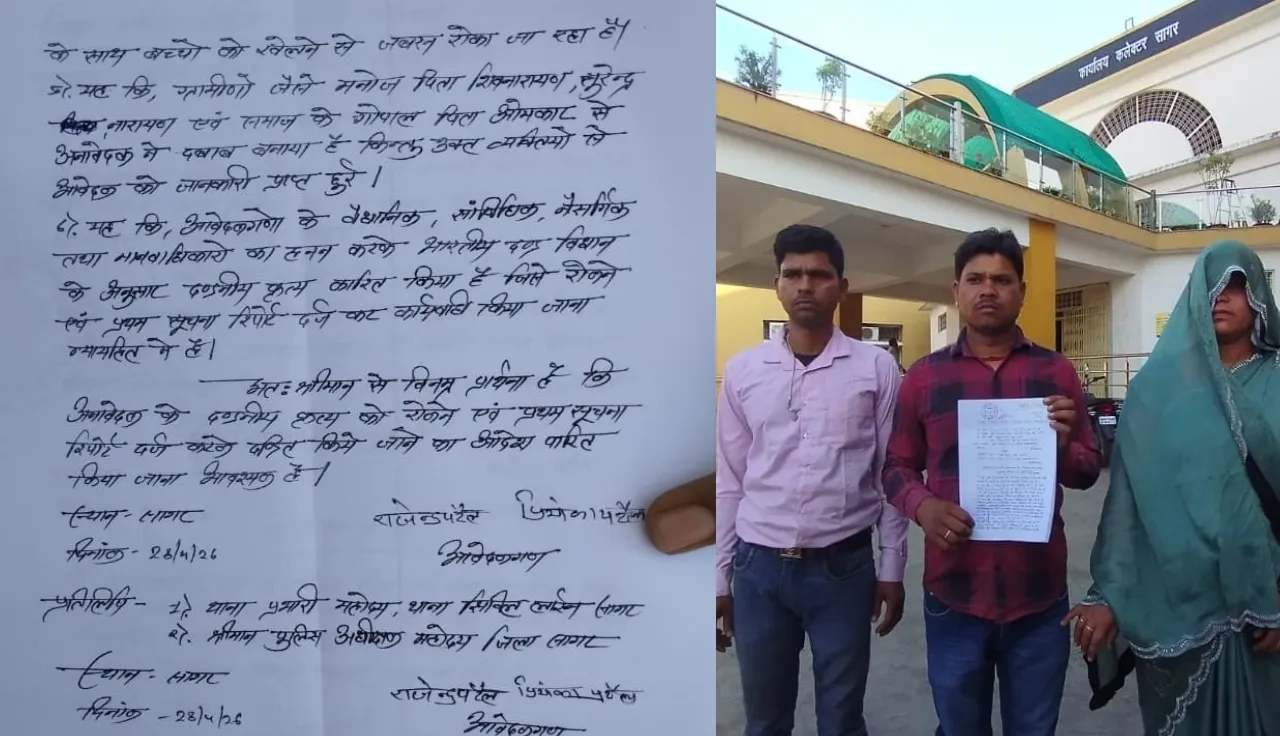 के साथ बच्चो को खेलने से जबरन रोका जा रहा है।
5). यह कि, ग्रामीणो जैसे मनोज पिता शिवनारायण, सुरेन्द्र
नारायण एवं समाज के गोपाल पिता ओमकार से
अनावेदक ने दबाव बनाया है किन्तु उक्त व्यक्तियो से
आवेदक को जानकारी प्राप्त हुई।
6). यह कि, आवेदकगणो के वैधानिक, सांविधिक, नैसर्गिक
तथा मानवाधिकारो का हनन करके भारतीय दण्ड विधान
के अनुसार दण्डनीय कृत्य कारित किया है जिसे रोकने
एवं प्रथम सूचना रिपोर्ट दर्ज कर कार्यवाही किया जाना
न्यायहित मे है।
अतः श्रीमान से विनम्र प्रार्थना है कि
अनावेदक के दण्डनीय कृत्य को रोकने एवं प्रथम सूचना
रिपोर्ट दर्ज करके दंडित किये जाने का आदेश पारित
किया जाना आवश्यक है।
स्थान - सागर
दिनांक - 28/4/26
राजेन्द्र पटैल प्रियंका पटैल
आवेदकगण
प्रतिलिपि - 1). थाना प्रभारी महोदय, थाना सिविल लाईन सागर
2). श्रीमान पुलिस अधीक्षक महोदय जिला सागर
स्थान - सागर
दिनांक - 28/4/26
राजेन्द्र पटैल प्रियंका पटैल
आवेदकगण
कार्यालय कलेक्टर सागर